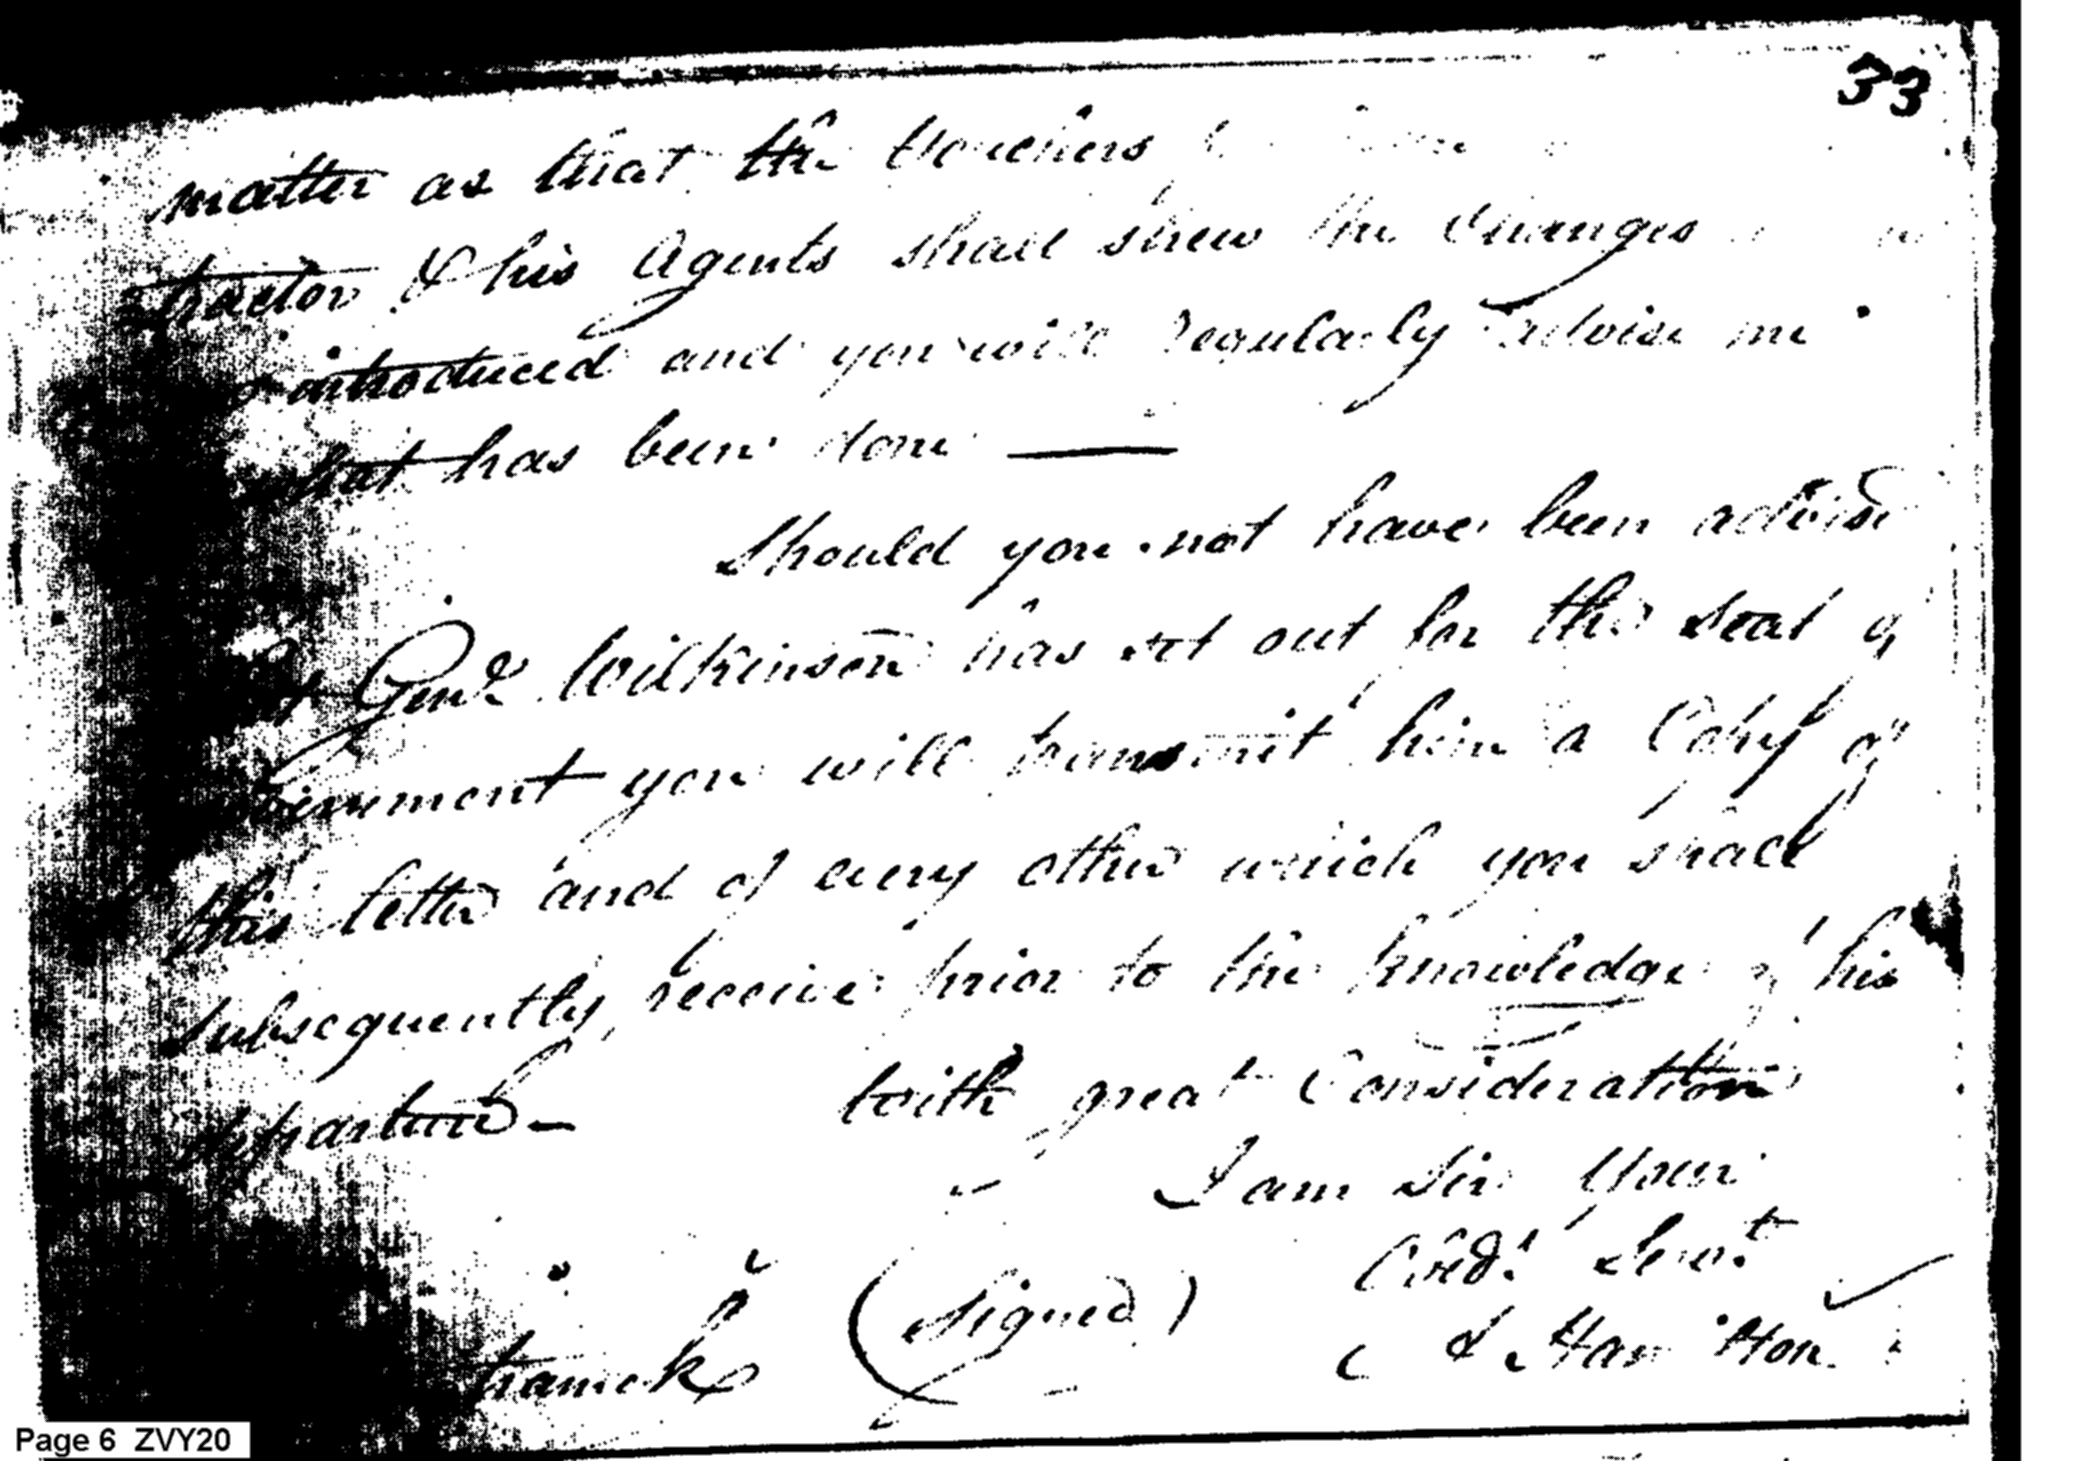 33
matter as that the Vouchers
tractor & his Agents shall shew the Changes
introduced and you will regularly advise me
what has been done —
Should you not have been advise
Genl. Wilkinson has set out for the Seat of
vernment you will transmit him a Copy of
this letter and of every other which you shall
subsequently receive prior to the knowledge of his
departure —
With great Consideration
I am Sir Your
Obedt. Servt.
(Signed) A. Hamilton
Page 6 ZVY20